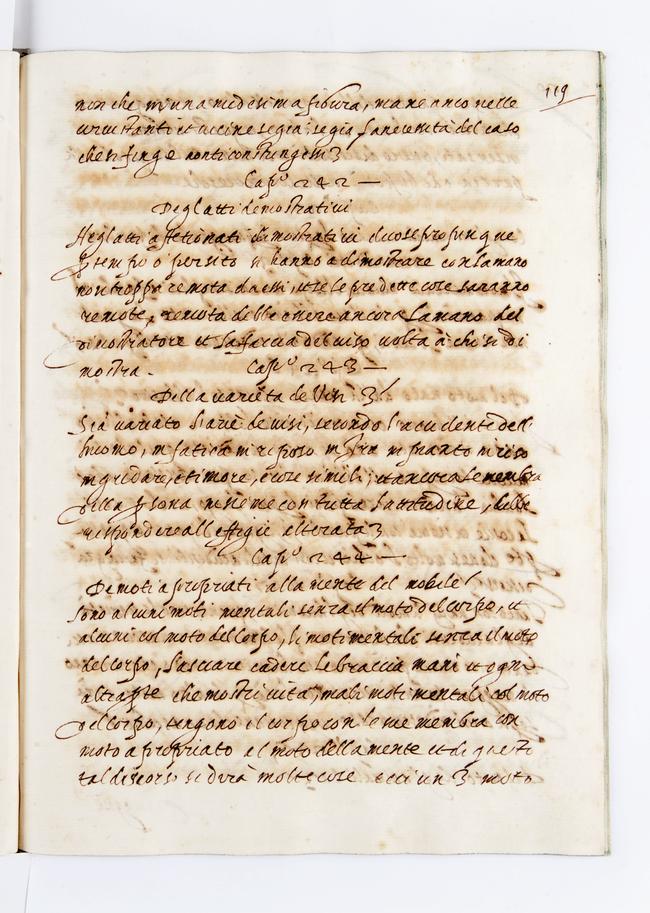 119
non che in una medesima figura, ma ne anco nelle
circustanti et vicine se gia la necessità del caso
che si finge non ti constringessi
Cap.º 242 —
De gl atti dimostrativi
Ne gl atti affetionati dimostrativi di cose propinque
p tempo o per sito si hanno a dimostrare con la mano
non troppo remota da essi, et se le predette cose saranno
remote, remota debbe essere ancora la mano del
dimostratore et la faccia del viso volta a chi si di
mostra. Cap.º 243 —
Della varieta de Visi
Sia variato l'arie de visi, secondo l'accidente dell
huomo, in fatica in riposo in ira in pianto in riso
in gridare, et timore, e cose simili; et ancora le membra
della p sona insieme con tutta l'attitudine, debbe
rispondere all effigie alterata
Cap.º 244 —
De moti apropriati alla mente del mobile
Sono alcuni moti mentali senza il moto del corpo, et
alcuni col moto del corpo, li moti mentali senza il moto
del corpo, lasciare cadere le braccia mani et ogni
altra p te che mostri vita, ma li moti mentali col moto
del corpo, tengono il corpo con le sue membra con
moto apropriato al moto della mente et di questi
tal discorsi si dirà molte cose ecci un 3 moto